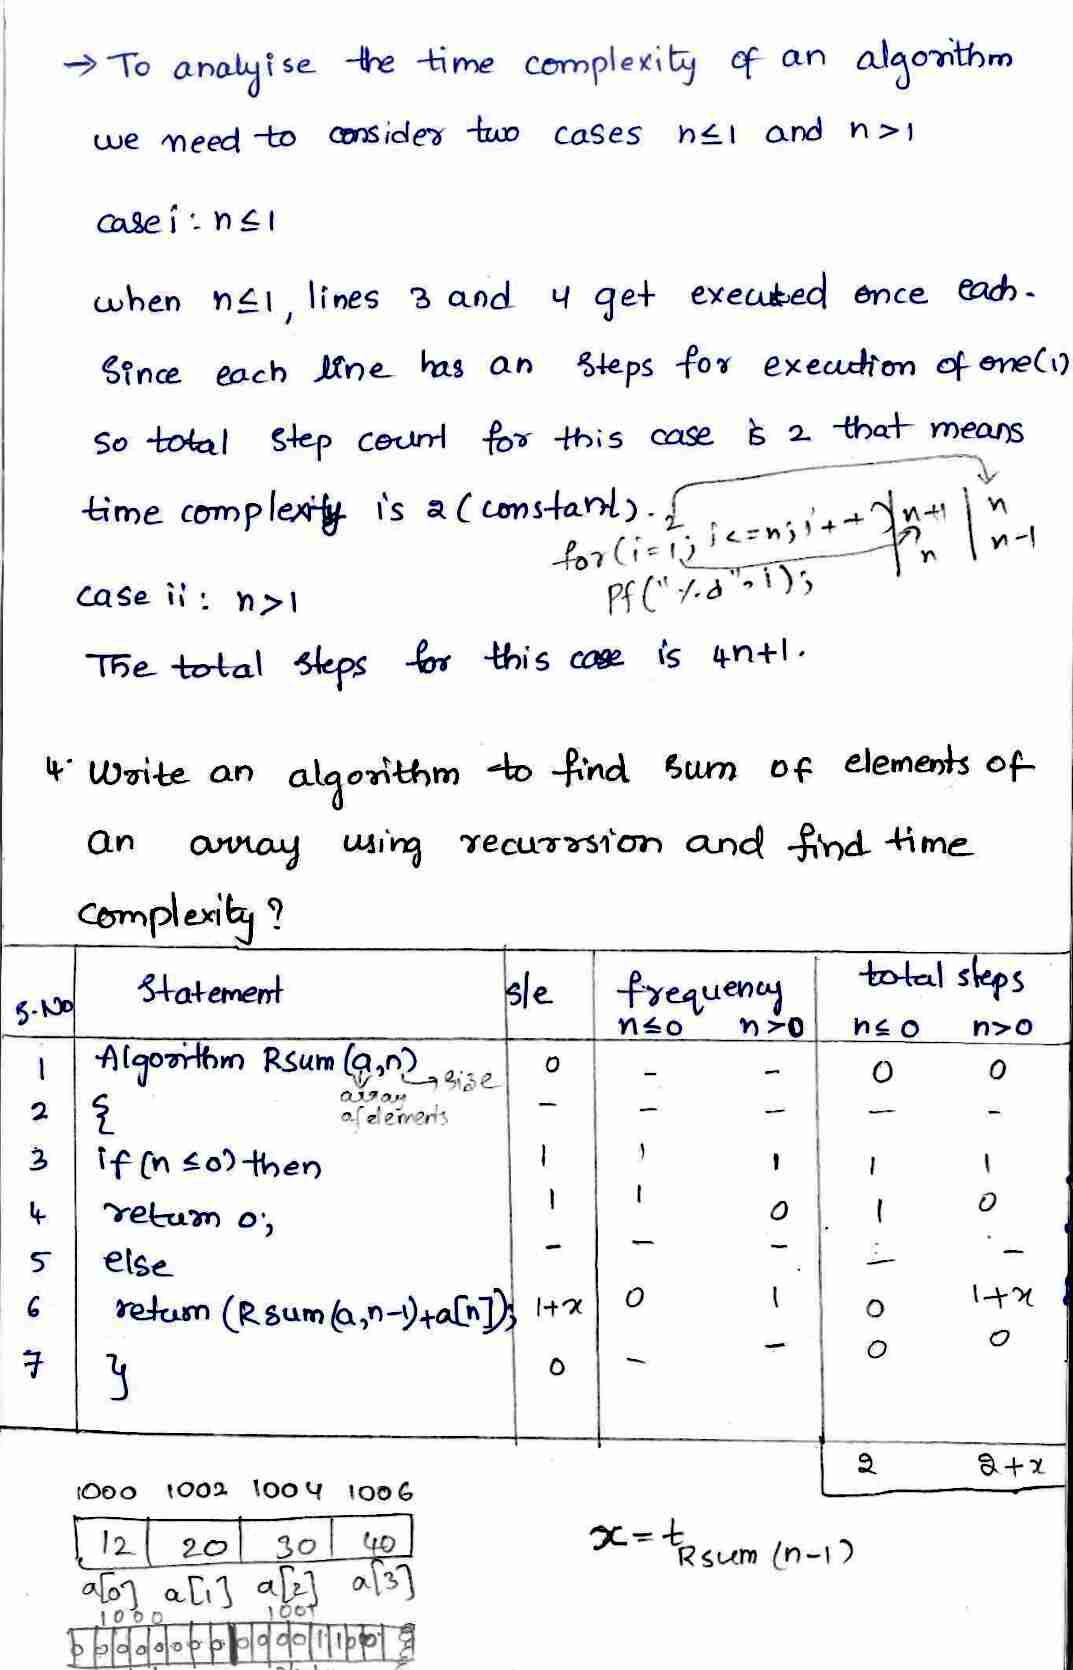 → To analyise the time complexity of an algorithm
we need to consider two cases n≤1 and n>1
case i : n≤1
when n≤1, lines 3 and 4 get executed once each.
Since each line has an steps for execution of one(1)
so total step count for this case is 2 that means
time complexity is 2 (constant).
for(i=1; i<=n; i++) n+1 | n
Pf("%d", i); n | n-1
case ii : n>1
The total steps for this case is 4n+1.
4. Write an algorithm to find sum of elements of
an array using recurrsion and find time
complexity?
S.No Statement s/e frequency total steps
n≤0 n>0 n≤0 n>0
1 Algorithm Rsum (a,n) 0 - - 0 0
→ size
array
of elements
2 { - - - - -
3 if (n ≤0) then 1 1 1 1 1
4 return 0; 1 1 0 1 0
5 else - - - - -
6 return (Rsum(a,n-1)+a[n]); 1+x 0 1 0 1+x
7 } 0 - - 0 0
2 2+x
1000 1002 1004 1006
12 20 30 40
x = t Rsum (n-1)
a[0] a[1] a[2] a[3]
1000 1001